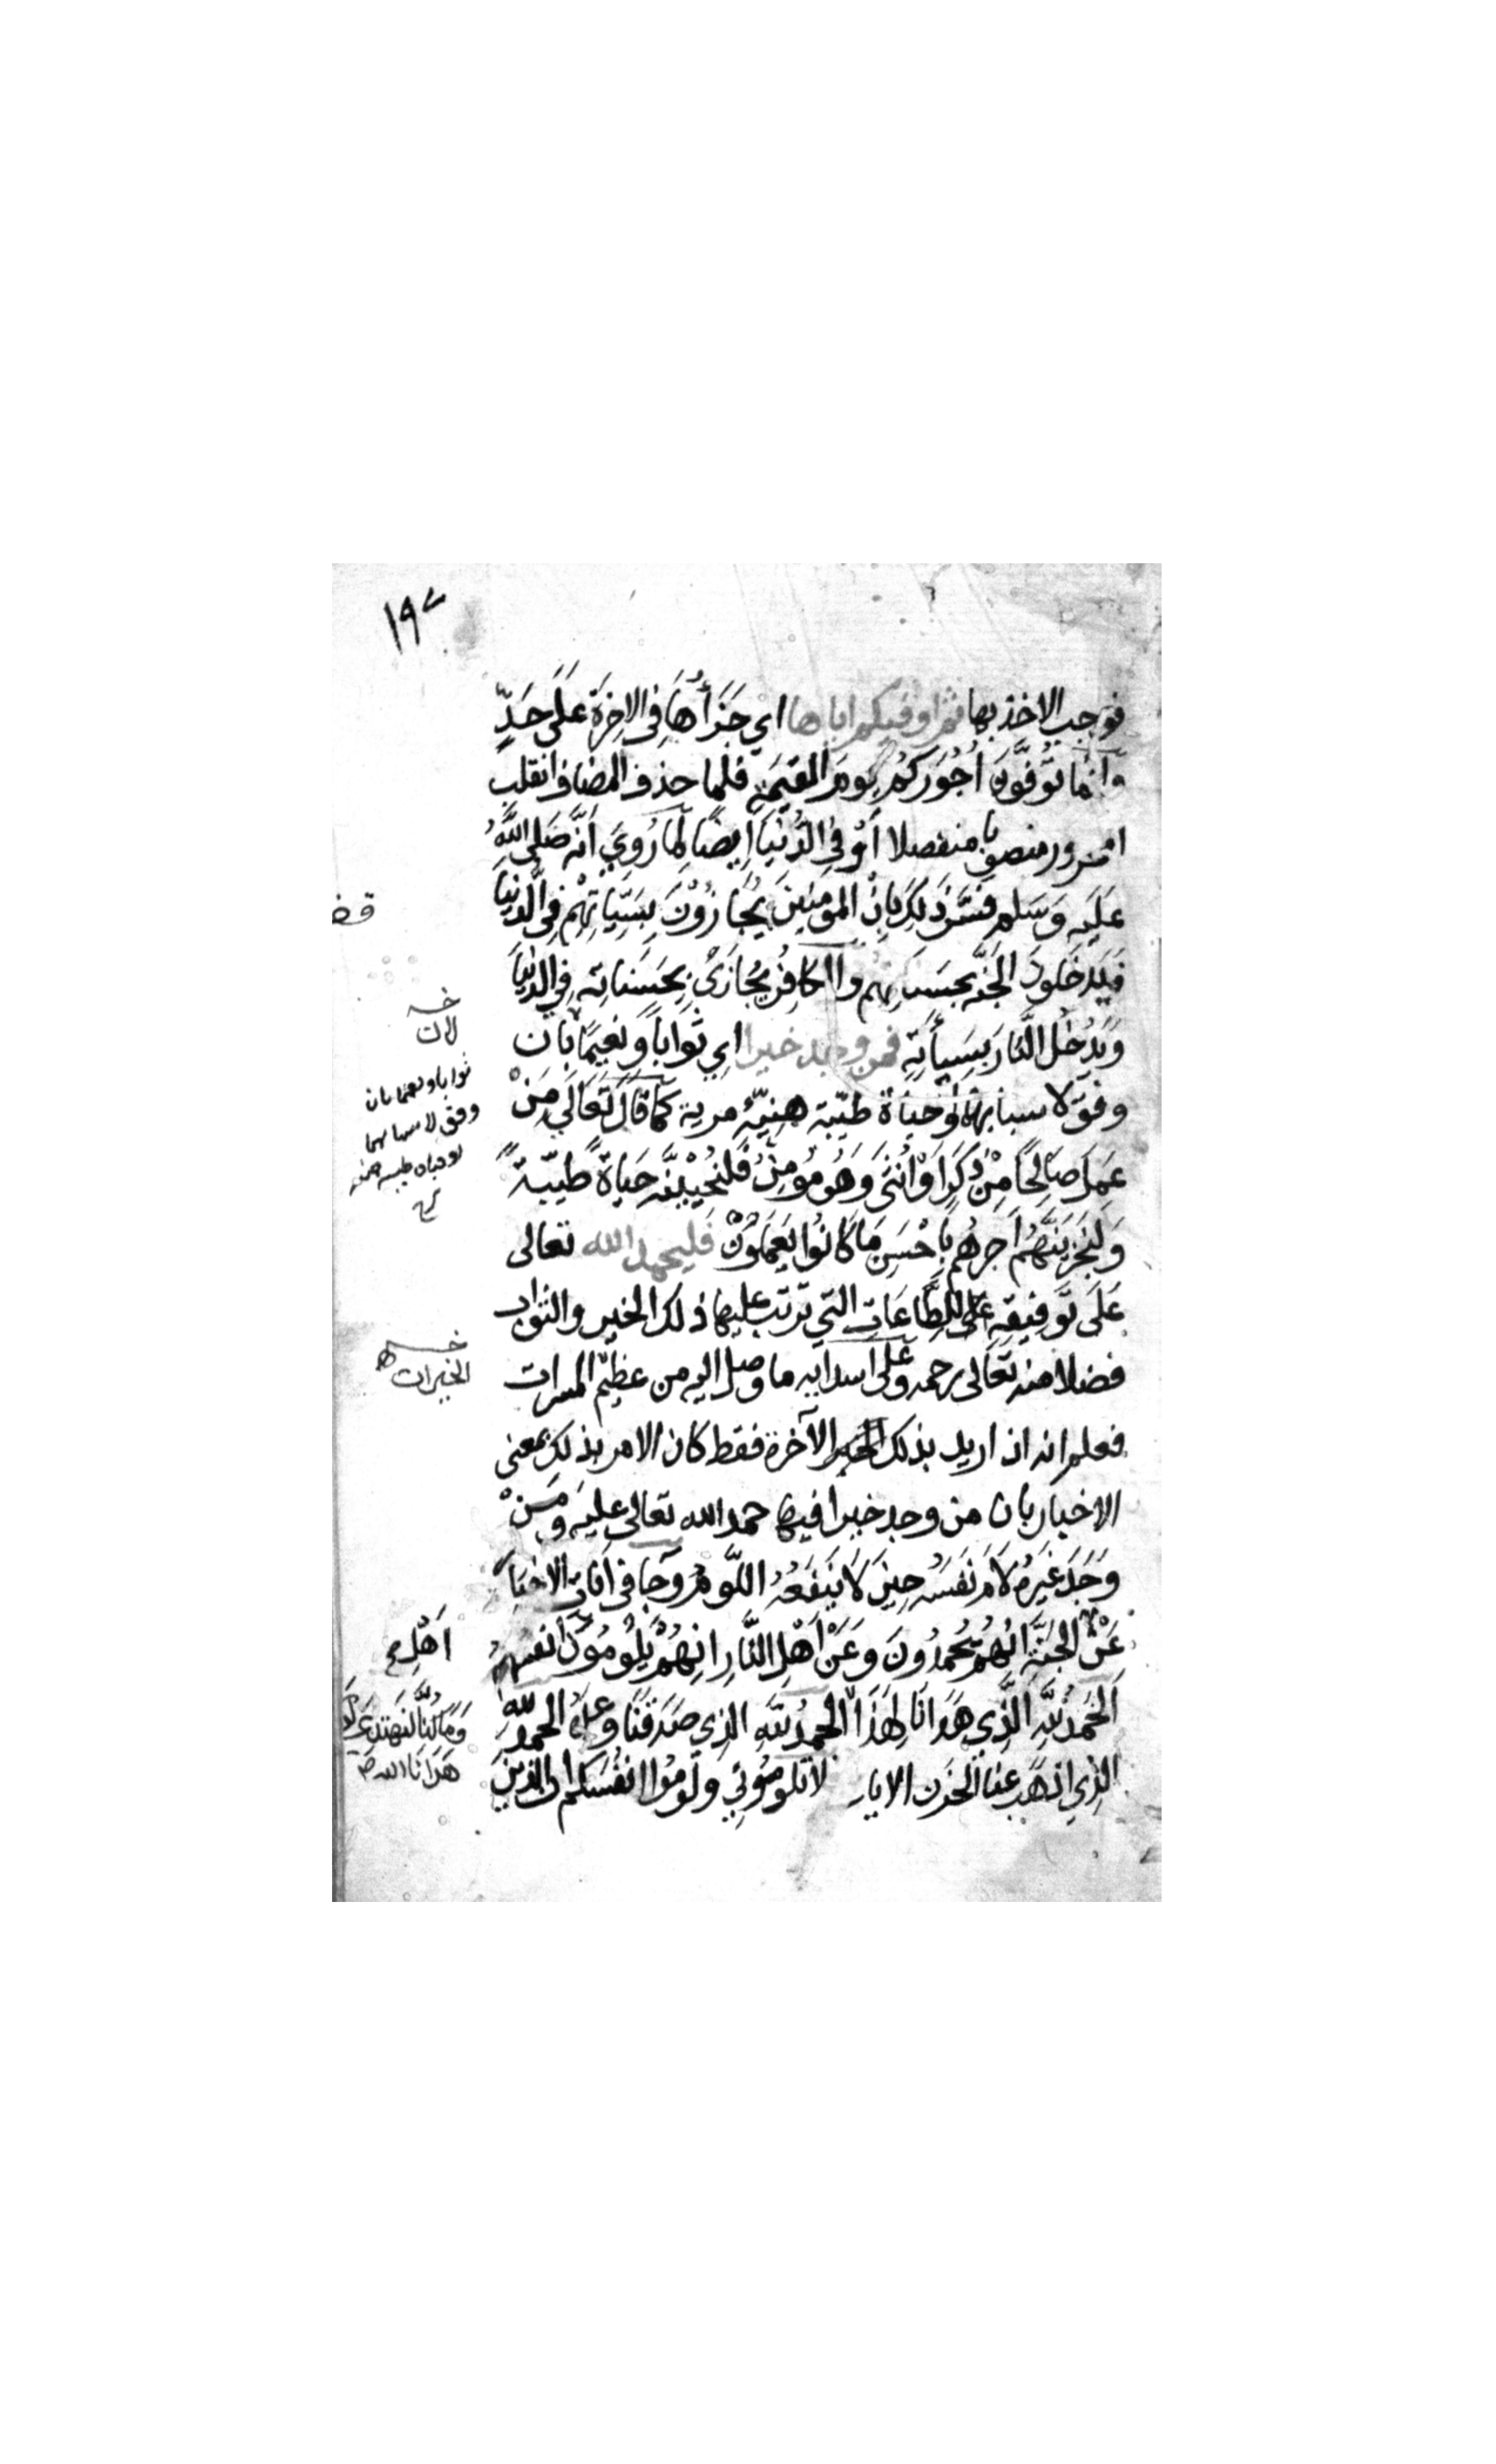 ١٩٧
فوجب الاخذ بها ثم اوفيكم اياها اي جَزَأُهَا فِى الاخِرَة عَلَى حَدِّ
وَاِنَّمَا تُوَفَّوْنَ أُجُوْرَكُمْ يَومَ القِيمَةِ فلما حذف المضاف انقلب
منصوبا منفصلا أوْ فِي الدُّنيَا اَيضًا لِمَا رُوِيَ اَنَّه صَلى اللَّهُ
عَلَيه وَسَلم فسَّرَ ذَلِكَ بِاَنَّ المومِنِينَ يُجَازَوْنَ بِسَيِّأتِهِمْ فِى الدُّنيَا
فَيَدخلونَ الجَنّة بحسنَاتِهم والكافِرُ يُجَازَى بِحَسَناتِه فِي الدنيَا
وَيَدْخُل النَّارَ بِسَيِّأتِه فمن وجد خيرا اي ثَوَابًا وَنَعِيمًا بان
وفق لاسبابهما أوْ حيَاةً طيّبَة هِنيّئة مرية كَمَا قَالَ تَعَالَى مَنْ
عَمِلَ صَالِحًا مِنْ ذَكَرٍ اَوْ اُنثَى وَهُوَ مُوْمِنٌ فَلَنُحْيِيَنَّه حَيَاةً طيّبَةً
وَلَنَجْزِيَنَّهُم اَجرهُم بِاَحْسَنِ مَا كَانُوا يَعمَلُوْنْ فَليحمد الله تعالى
عَلَى تَوفِيقِهِ لِلطَّاعَاتِ التي ترتب عليها ذلك الخير والثواب
فضلا منه تعَالى ورحمه وعلى اسدايه ما وصل اليه من عظيم المسرات
فعلم انه اذا اريد بذلك الاخرة فقط كان الامر بذلك بمعنى
الاخبار بان من وجد خيرا فيها حمد الله تعالى عليه وَمَنْ
وَجَدَ غَيرَهُ لَامَ نَفسَه حِينَ لَا يَنفَعُهُ اللَّومُ وَجَا فى الاخبار
عَنْ الجنّة انهُم يحمدُونَ وَعَنْ اَهْلِ النَّارِ اِنهُمْ يَلُومُوْنَ أنفسهم
اَلحَمدُ لِلَّهِ الَّذِي هَدَانَا لِهَذَا الحمدُ لِلَّهِ الذي صَدَقَنَا وَعدَهُ الحمد لله
الذِي اذهَبَ عنا الحزَن الايات لَا تلومُونِي وَلُومُوا انفُسَكم ان الذين
خـ
لان
ثوابا ونعيما بان
وفق لاسبابهما
او حياة طيبة
خـ
الخيرات
اَهْلِ صح
وَمَا كُنَّا لِنَهْتَدِيَ لَولَا
هَدَانَا الله